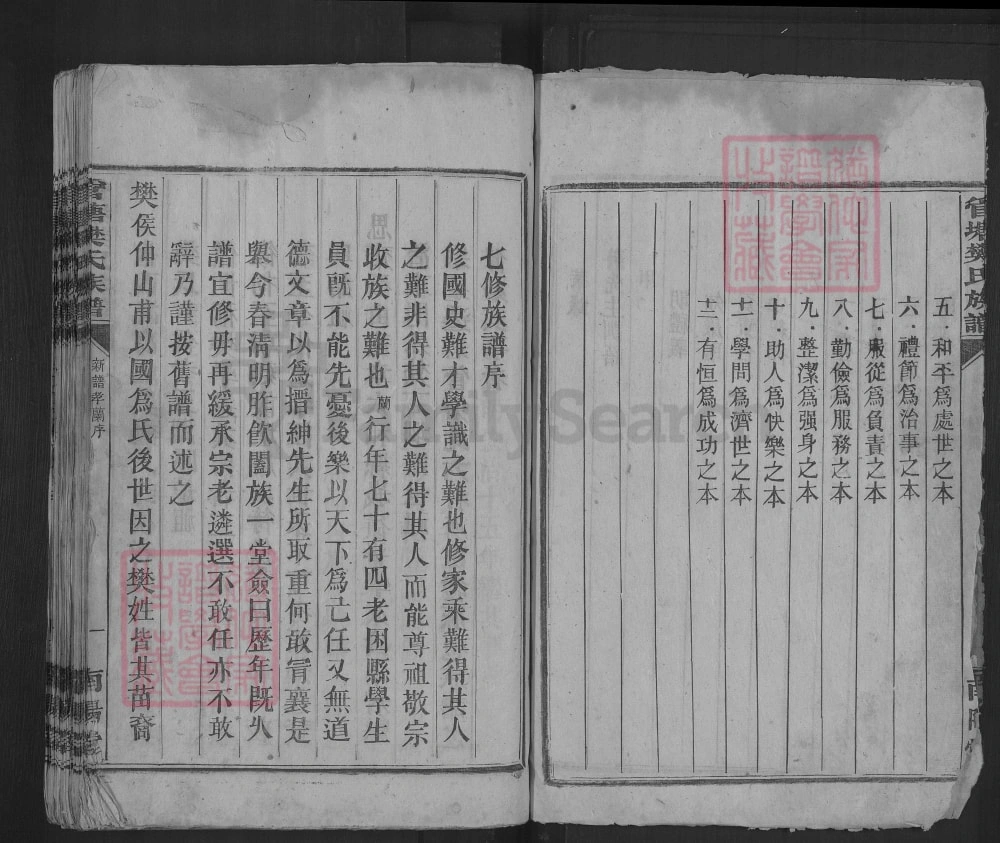 五．和平爲處世之本
六．禮節爲治事之本
七．服從爲負責之本
八．勤儉爲服務之本
九．整潔爲强身之本
十．助人爲快樂之本
十一．學問爲濟世之本
十二．有恒爲成功之本
七修族譜序
修國史難才學識之難也修家乘難得其人
之難非得其人之難得其人而能尊祖敬宗
收族之難也蘭行年七十有四老困縣學生
員旣不能先憂後樂以天下爲己任又無道
德文章以爲搢紳先生所取重何敢肎襄是
舉今春淸明胙飮闔族一堂僉曰歷年旣久
譜宜修毋再緩承宗老遴選不敢任亦不敢
辭乃謹按舊譜而述之
樊侯仲山甫以國爲氏後世因之樊姓皆其苗裔
樊氏族譜
新譜孝蘭序
一
南陽堂